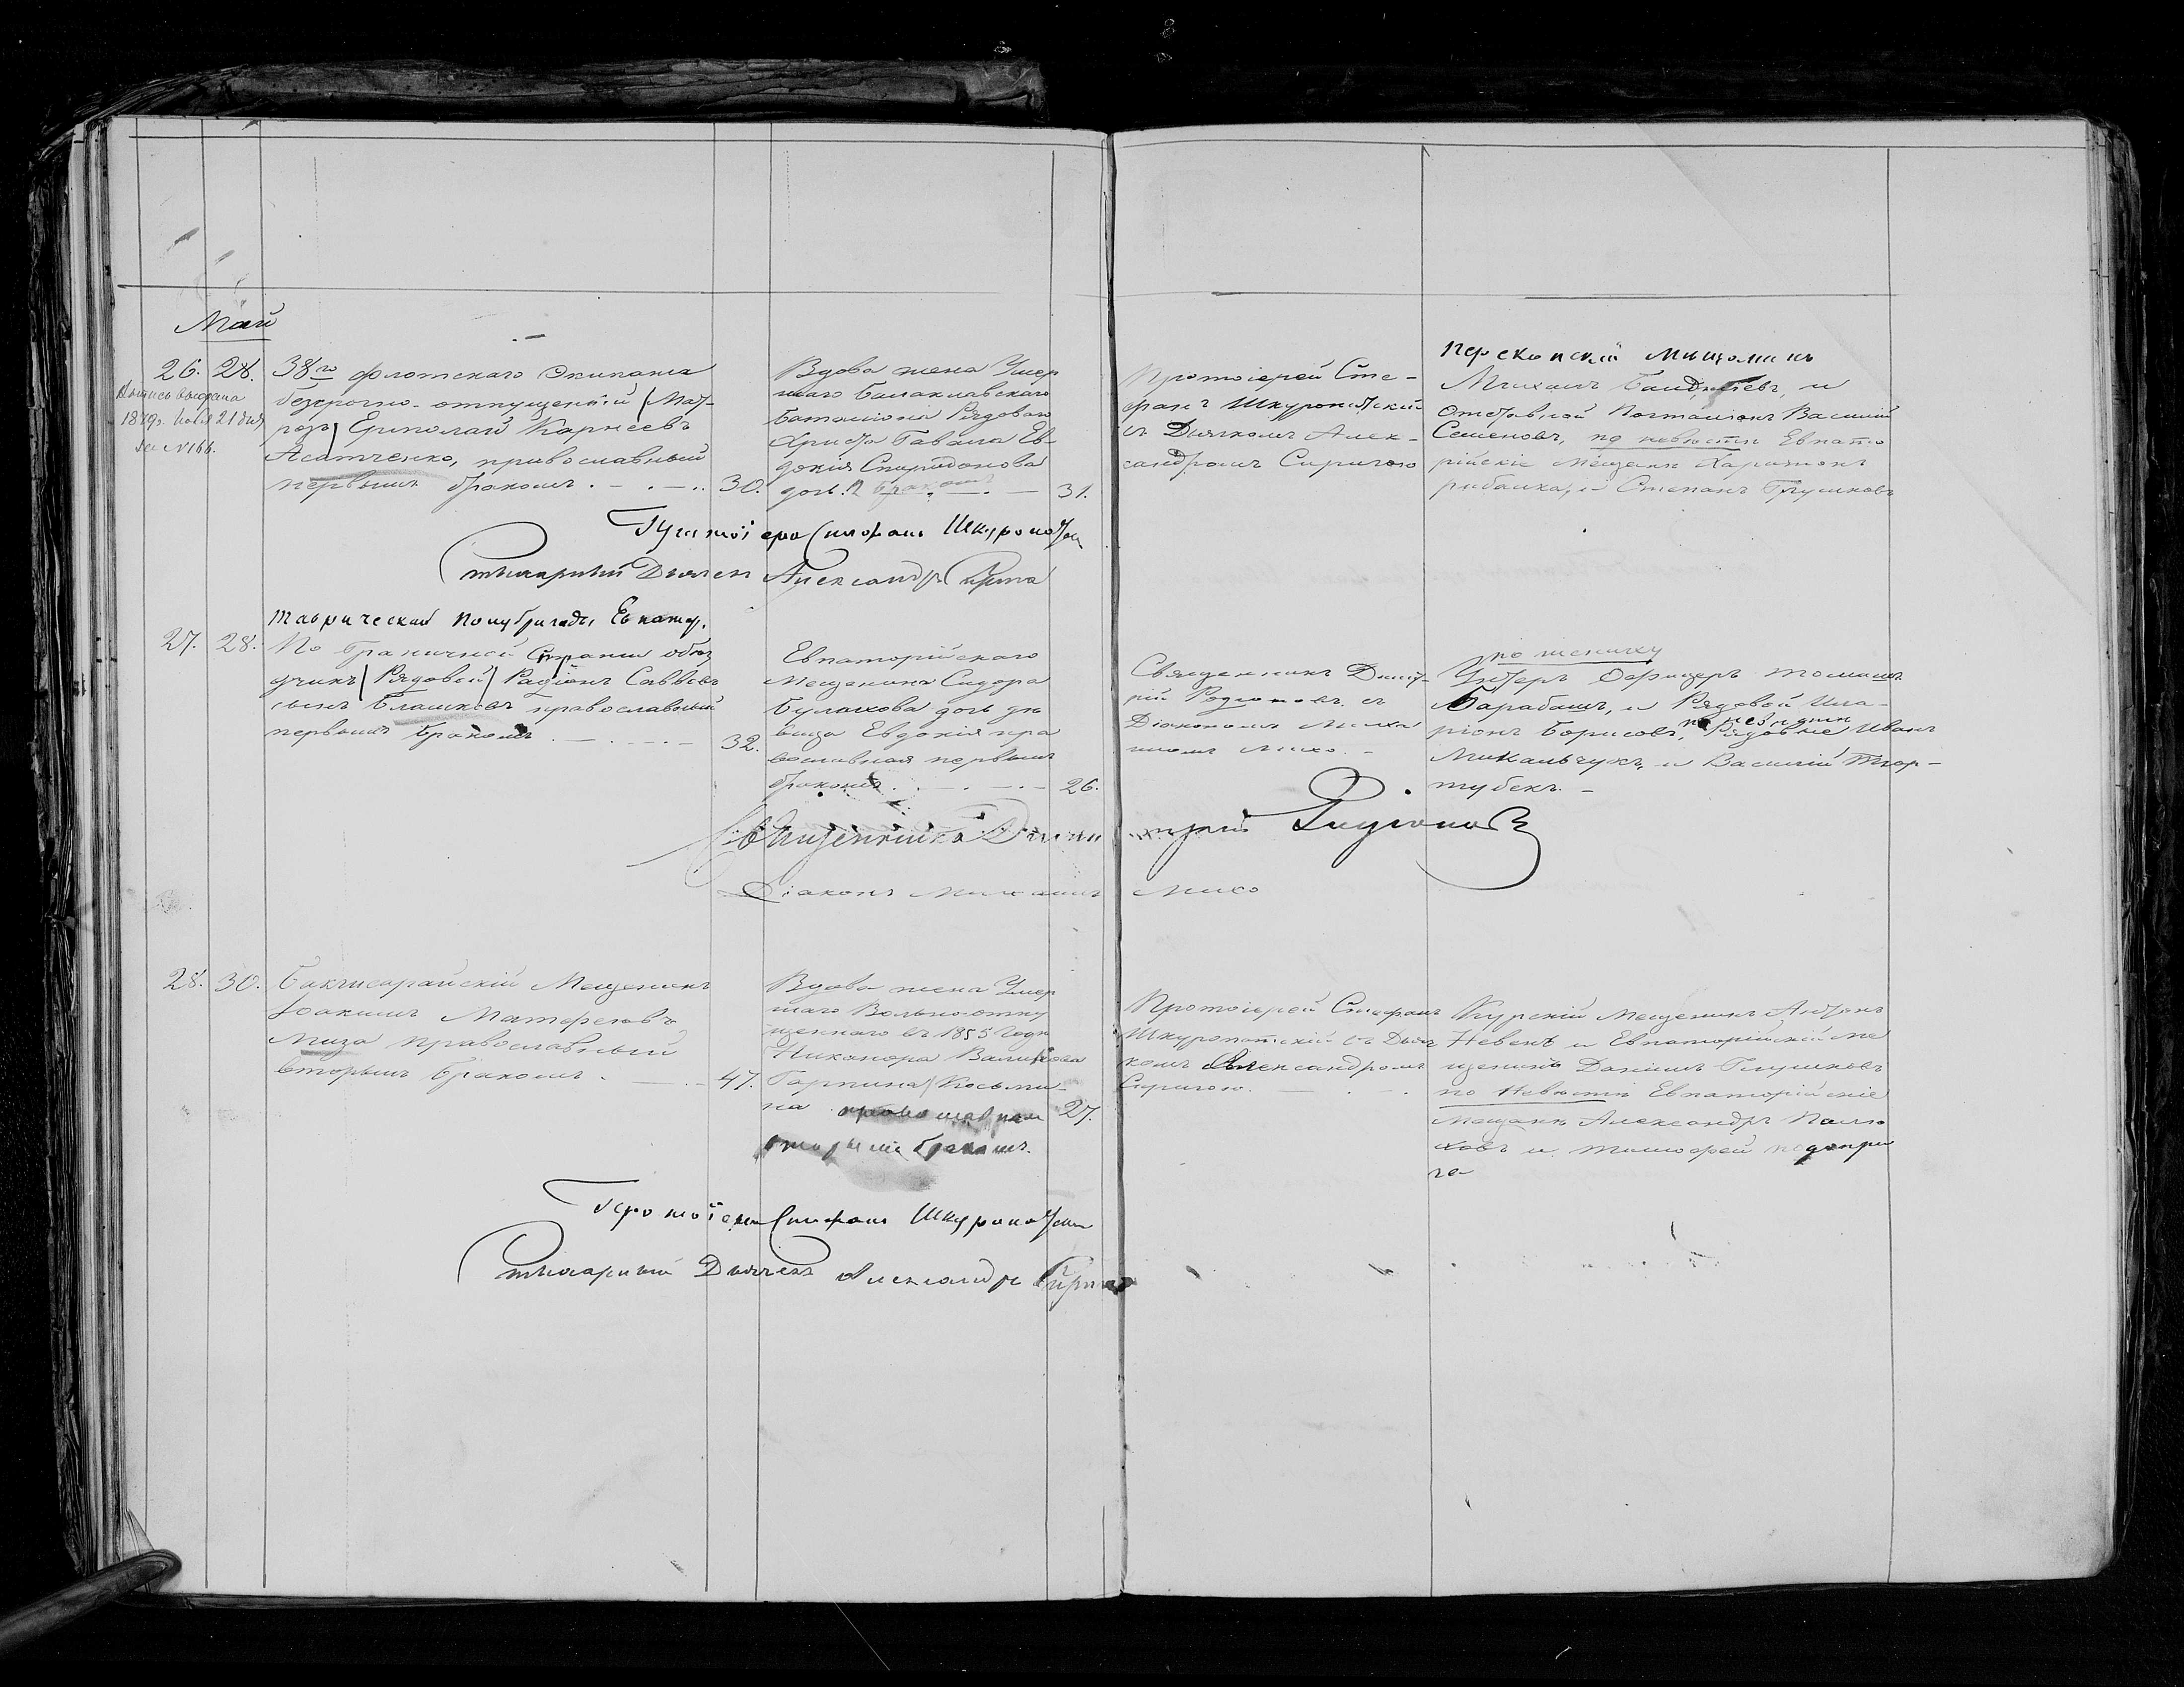 Май
26. 28.
Выпись выдана
1849 г. Нояб 21 дня
за N 166.
38го флотскаго Экипажа
безсрочно-отпущенный (Мат-
розъ) Ермолай Карнеевъ
Асатченко, православный
первымъ бракомъ. 30.
Вдова жена Умер
шаго Балаклавскаго
баталиона Рядоваго
Христо Гавала Ев-
докія Спиридонова
дочь. 2 бракомъ 31.
Протоіерей Сте-
фанъ Шкуропатскій
съ Дьячкомъ Алек-
сандромъ Сиригою
Перекопскій Мещанинъ
Михаилъ и
Отставной Почталионъ Василій
Семеновъ, по невестѣ Евпато
рійскіе Мещане Харитонъ
рибалка, и Степанъ Глушковъ
Протоіерей Стефанъ Шкуропатскій
Дьячекъ Александръ Сирига
Таврической Полубригады Евпатор.
27. 28.
По Граничной Стражи обѣз
дчикъ (Рядовой) Радіонъ Саввовъ
сынъ Блашковъ православный
первымъ бракомъ 32.
Евпаторійскаго
Мещанина Сидора
Булахова дочь дѣ
вица Евдокія пра
вославная первымъ
бракомъ 26.
Священникъ Дмит-
рій Родионовъ съ
Діакономъ Миха
иломъ Михо.
по жениху
Унтеръ Офицеръ Томашъ
Барабашъ, и Рядовой Ила-
ріонъ Борисовъ, по невѣсте Рядовые Иванъ
Михальчукъ, и Василій Тпор-
тубекъ.
Священникъ Димитрій Родіоновъ
Діаконъ Михаилъ Михо
28. 30.
Бахчисарайскій Мещанинъ
Іоакимъ Матфеовъ
Миза православный
вторымъ бракомъ. 47.
Вдова жена Умер
шаго Вольноотпу
щеннаго въ 1855 Году
Никонора Валикова
Гарпина Косьми-
на православная 27.
вторымъ бракомъ.
Протоіерей Стефанъ
Шкуропатскій съ Дьяч
комъ Александромъ
Сиригою.
Курскій Мещанинъ Антонъ
Невенъ и Евпаторійской ме
щанинъ Даніилъ Глушковъ
по Невѣсте Евпаторійскіе
Мещане Александръ Полю
ховъ и Тимофей подопри
га
Протоіерей Стефанъ Шкуропатскій
Дьячекъ Александръ Сирига